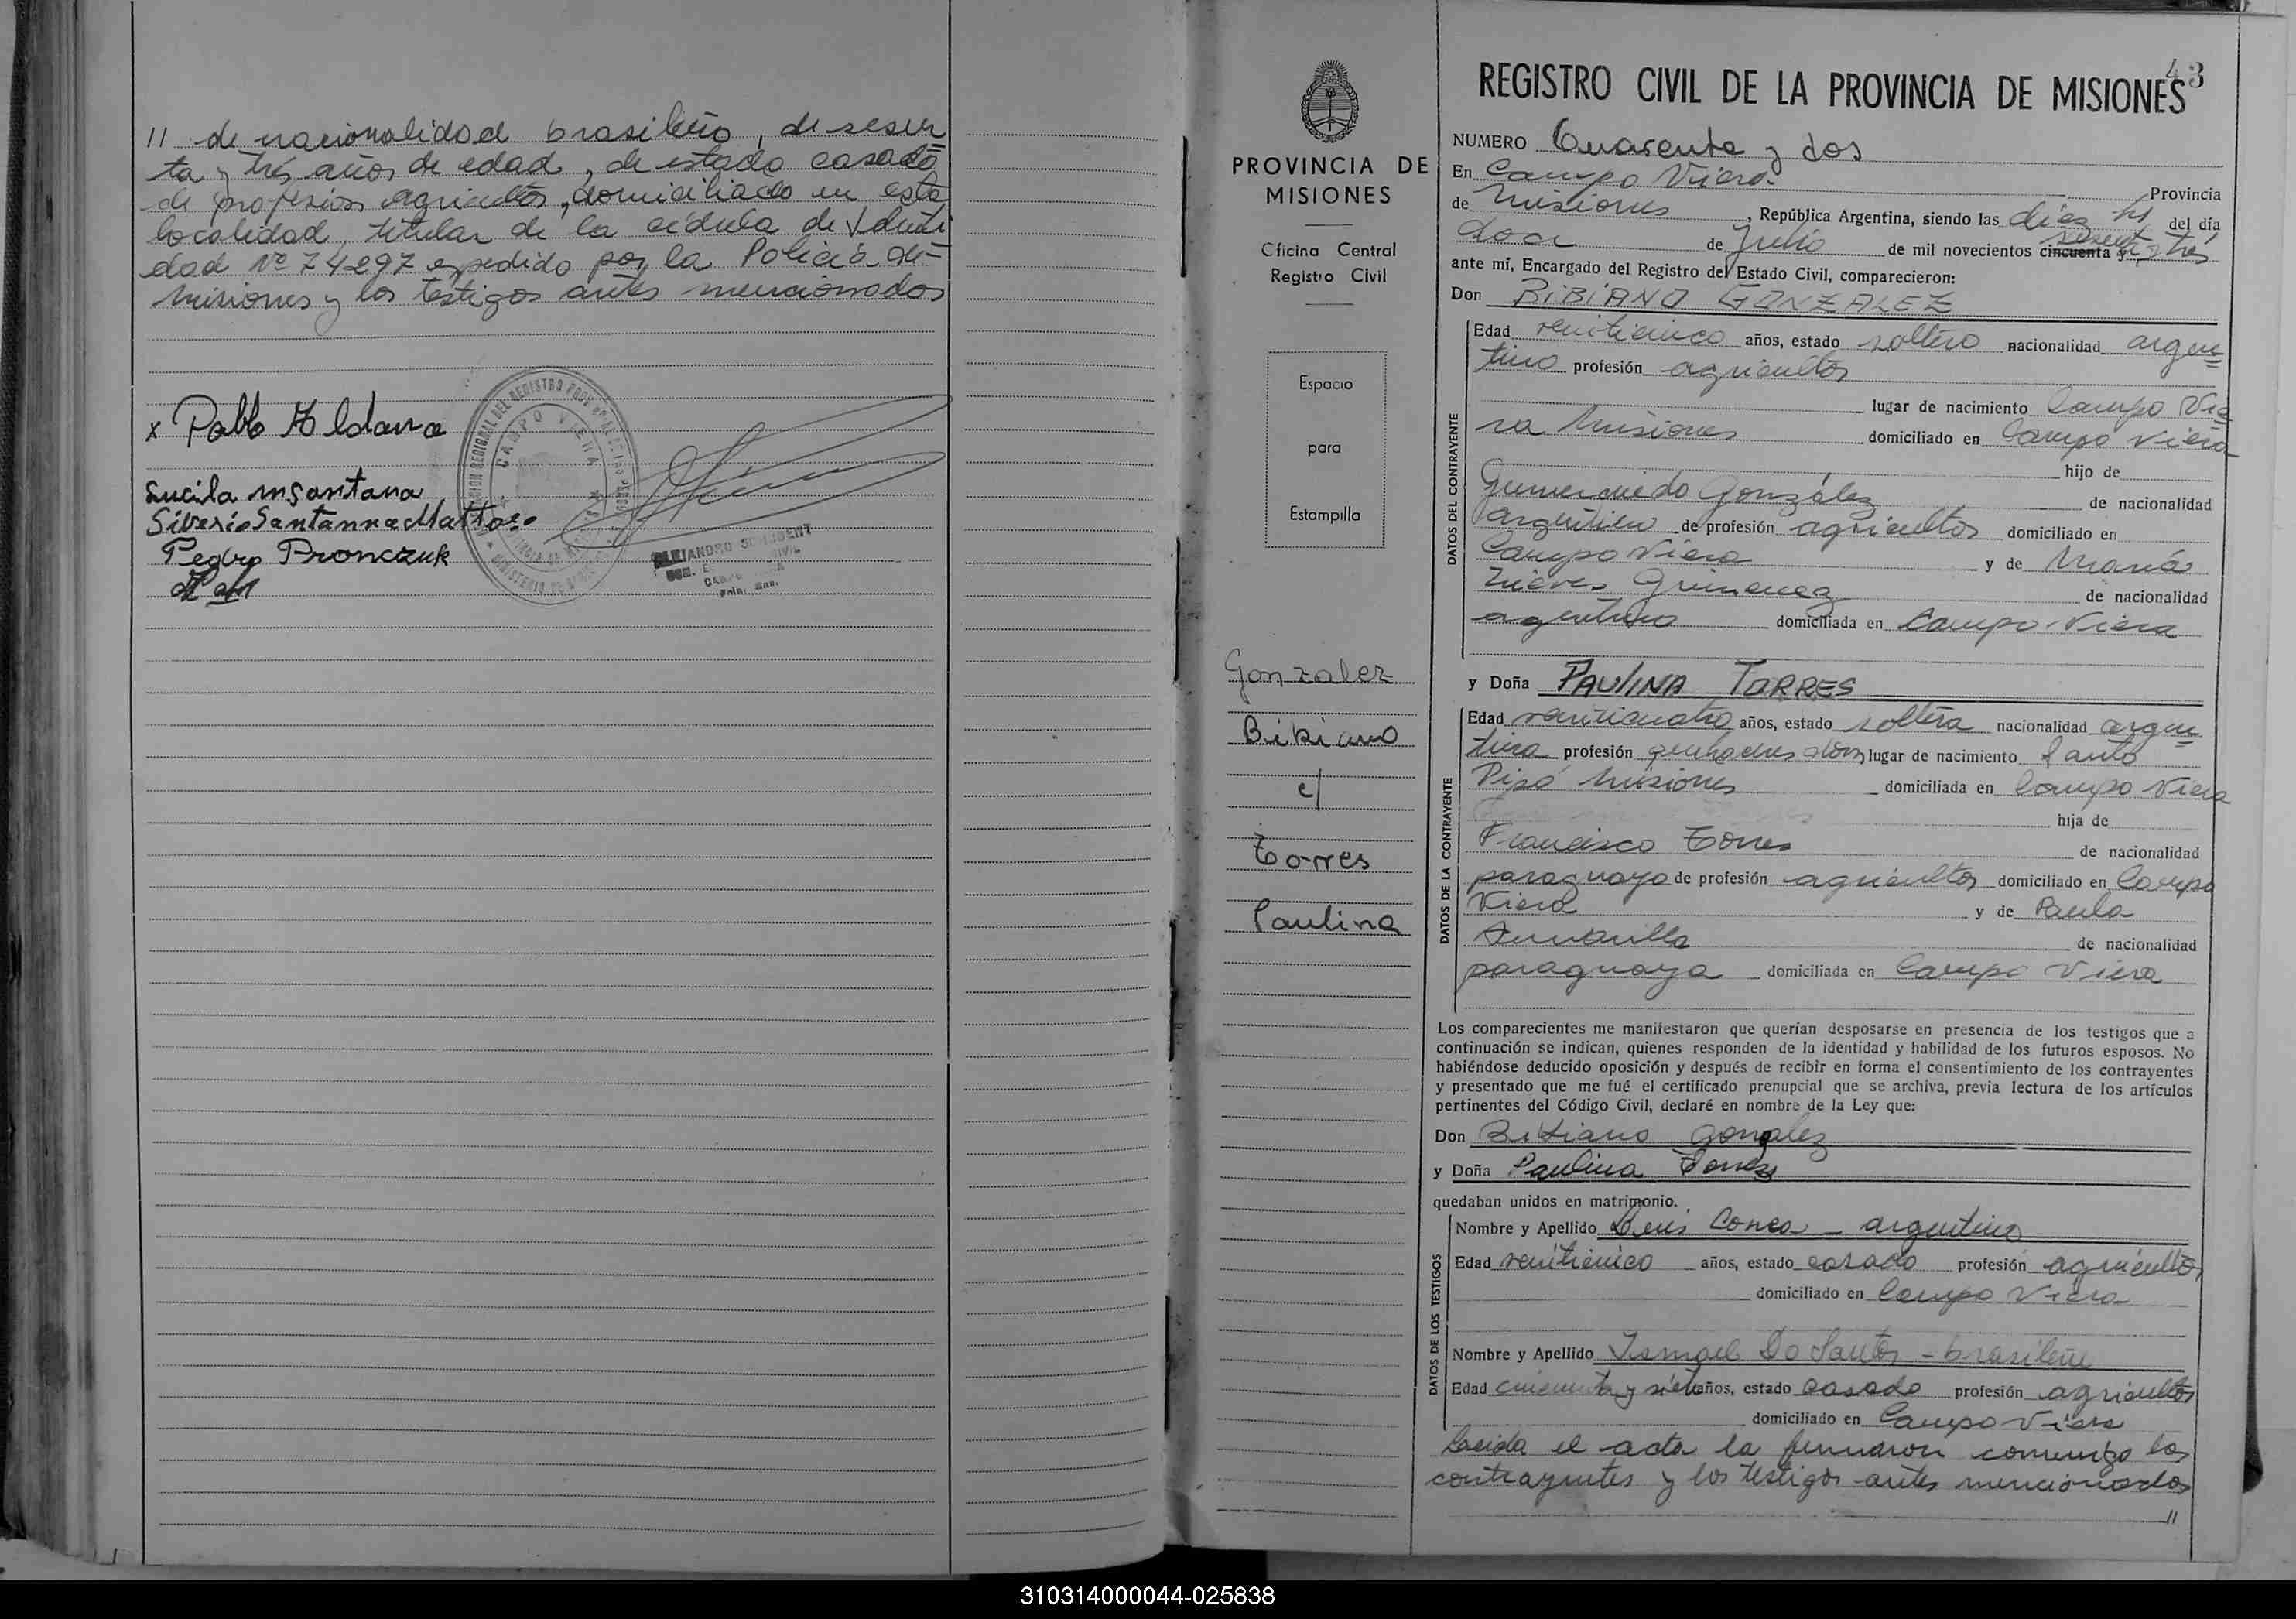 // de nacionalidad brasileño, de sesen
ta y trés años de edad, de estado casado
de profesion agricultor, domiciliado en esta
localidad, titular de la cédula de Identi
dad Nº 74297 expedido por la Policia de
Misiones y los testigos antes mencionados
x Pablo Aldana
Lucila M Santana
Siberio Santanna Mattozo
Pedro Pronczuk
CAMPO VIERA
ALEJANDRO
PROVINCIA DE
MISIONES
Oficina Central
Registro Civil
Espacio
para
Estampilla
Gonzalez
Bibiano
c/
Torres
Paulina
43
REGISTRO CIVIL DE LA PROVINCIA DE MISIONES
NUMERO Cuarenta y dos
En Campo Viera Provincia
de Misiones, República Argentina, siendo las diez hs del día
doce de Julio de mil novecientos cincuenta y sesenta y trés
ante mí, Encargado del Registro del Estado Civil, comparecieron:
Don BIBIANO GONZALEZ
DATOS DEL CONTRAYENTE
Edad veinticinco años, estado soltero nacionalidad argen
tino profesión agricultor
lugar de nacimiento Campo Vie
ra Misiones domiciliado en Campo Viera
hijo de
Gumercindo González de nacionalidad
argentino de profesión agricultor domiciliado en
Campo Viera y de María
Nieves Gimenez de nacionalidad
argentina domiciliada en Campo Viera
y Doña PAULINA TORRES
DATOS DE LA CONTRAYENTE
Edad veinticuatro años, estado soltera nacionalidad argen
tina profesión lugar de nacimiento Santo
Pipó Misiones domiciliada en Campo Viera
hija de
Francisco Torres de nacionalidad
paraguayo de profesión agricultor domiciliado en Campo
Viera y de Paula
de nacionalidad
paraguaya domiciliada en Campo Viera
Los comparecientes me manifestaron que querían desposarse en presencia de los testigos que a
continuación se indican, quienes responden de la identidad y habilidad de los futuros esposos. No
habiéndose deducido oposición y después de recibir en forma el consentimiento de los contrayentes
y presentado que me fué el certificado prenupcial que se archiva, previa lectura de los artículos
pertinentes del Código Civil, declaré en nombre de la Ley que:
Don Bibiano Gonzalez
y Doña Paulina Torres
quedaban unidos en matrimonio.
DATOS DE LOS TESTIGOS
Nombre y Apellido Luis Correa - argentino
Edad veinticinco años, estado casado profesión agricultor
domiciliado en Campo Viera
Nombre y Apellido Ismael Do Santos - brasileño
Edad cincuenta y siete años, estado casado profesión agricultor
domiciliado en Campo Viera
Leida el acta la firmaron conmigo los
contrayentes y los testigos antes mencionados
//
310314000044-025838